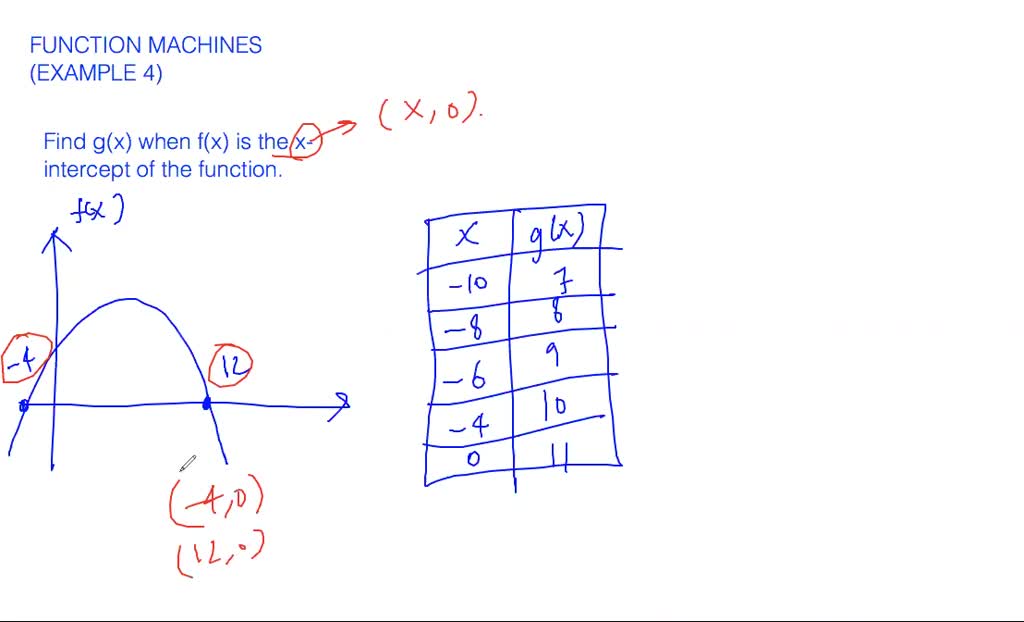 FUNCTION MACHINES
(EXAMPLE 4)
(x, 0).
Find g(x) when f(x) is the x-
intercept of the function.
f(x)
x g(x)
-10 7
-8 8
-6 9
-4 10
0 11
-4 12
(-4, 0)
(12, 0)